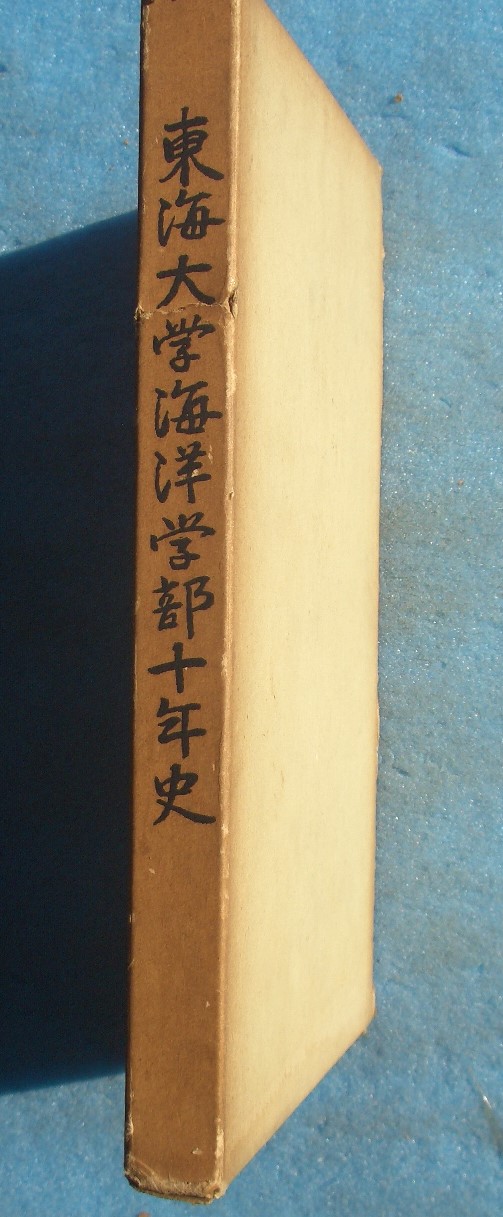 東海大学海洋学部十年史